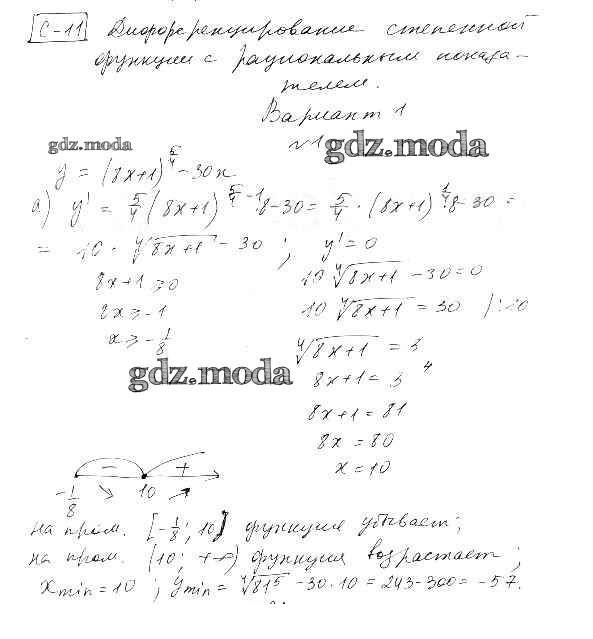 С-11 Дифференцирование степенной
функции с рациональным показа-
телем.
Вариант 1
gdz.moda
№1 gdz.moda
y = (8x+1)^(5/4) - 30x
а) y' = 5/4 (8x+1)^(5/4 - 1) · 8 - 30 = 5/4 · (8x+1)^(1/4) · 8 - 30 =
= 10 · ⁴√(8x+1) - 30 ; y' = 0
8x+1 ≥ 0
8x ≥ -1
x ≥ -1/8
10 ⁴√(8x+1) - 30 = 0
10 ⁴√(8x+1) = 30 | : 10
⁴√(8x+1) = 3
gdz.moda
8x+1 = 3⁴
8x+1 = 81
8x = 80
x = 10
- +
-1/8 ↘ 10 ↗
на пром. [-1/8; 10] функция убывает;
на пром. (10; +∞) функция возрастает;
x min = 10 ; y min = ⁴√(81⁵) - 30 · 10 = 243 - 300 = -57.